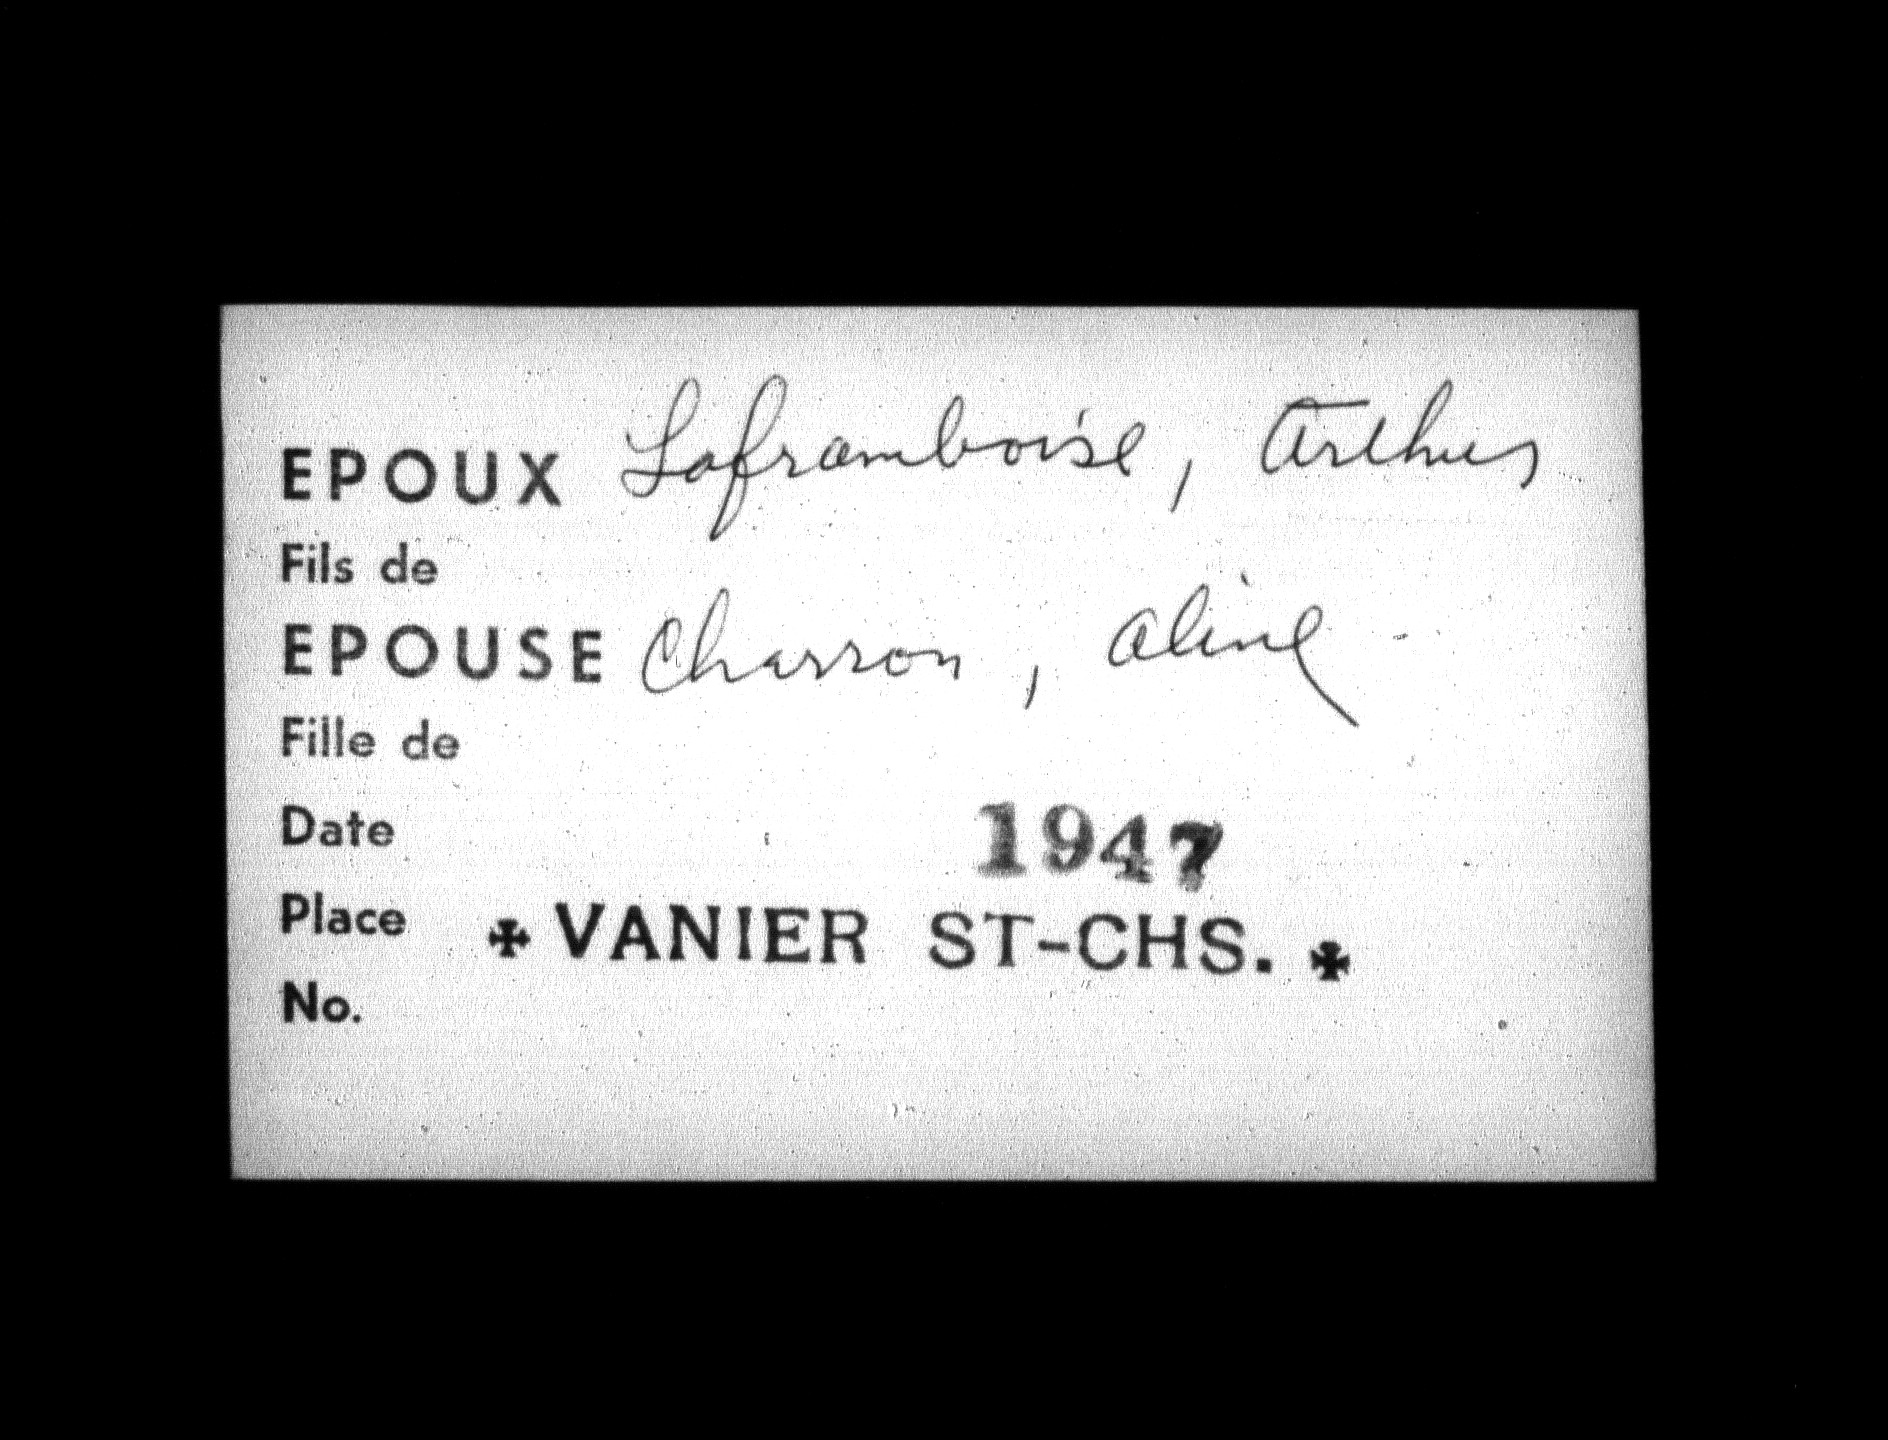 EPOUX Laframboise, Arthur
Fils de
EPOUSE Charron, Aline
Fille de
Date 1947
Place ✠ VANIER ST-CHS. ✠
No.